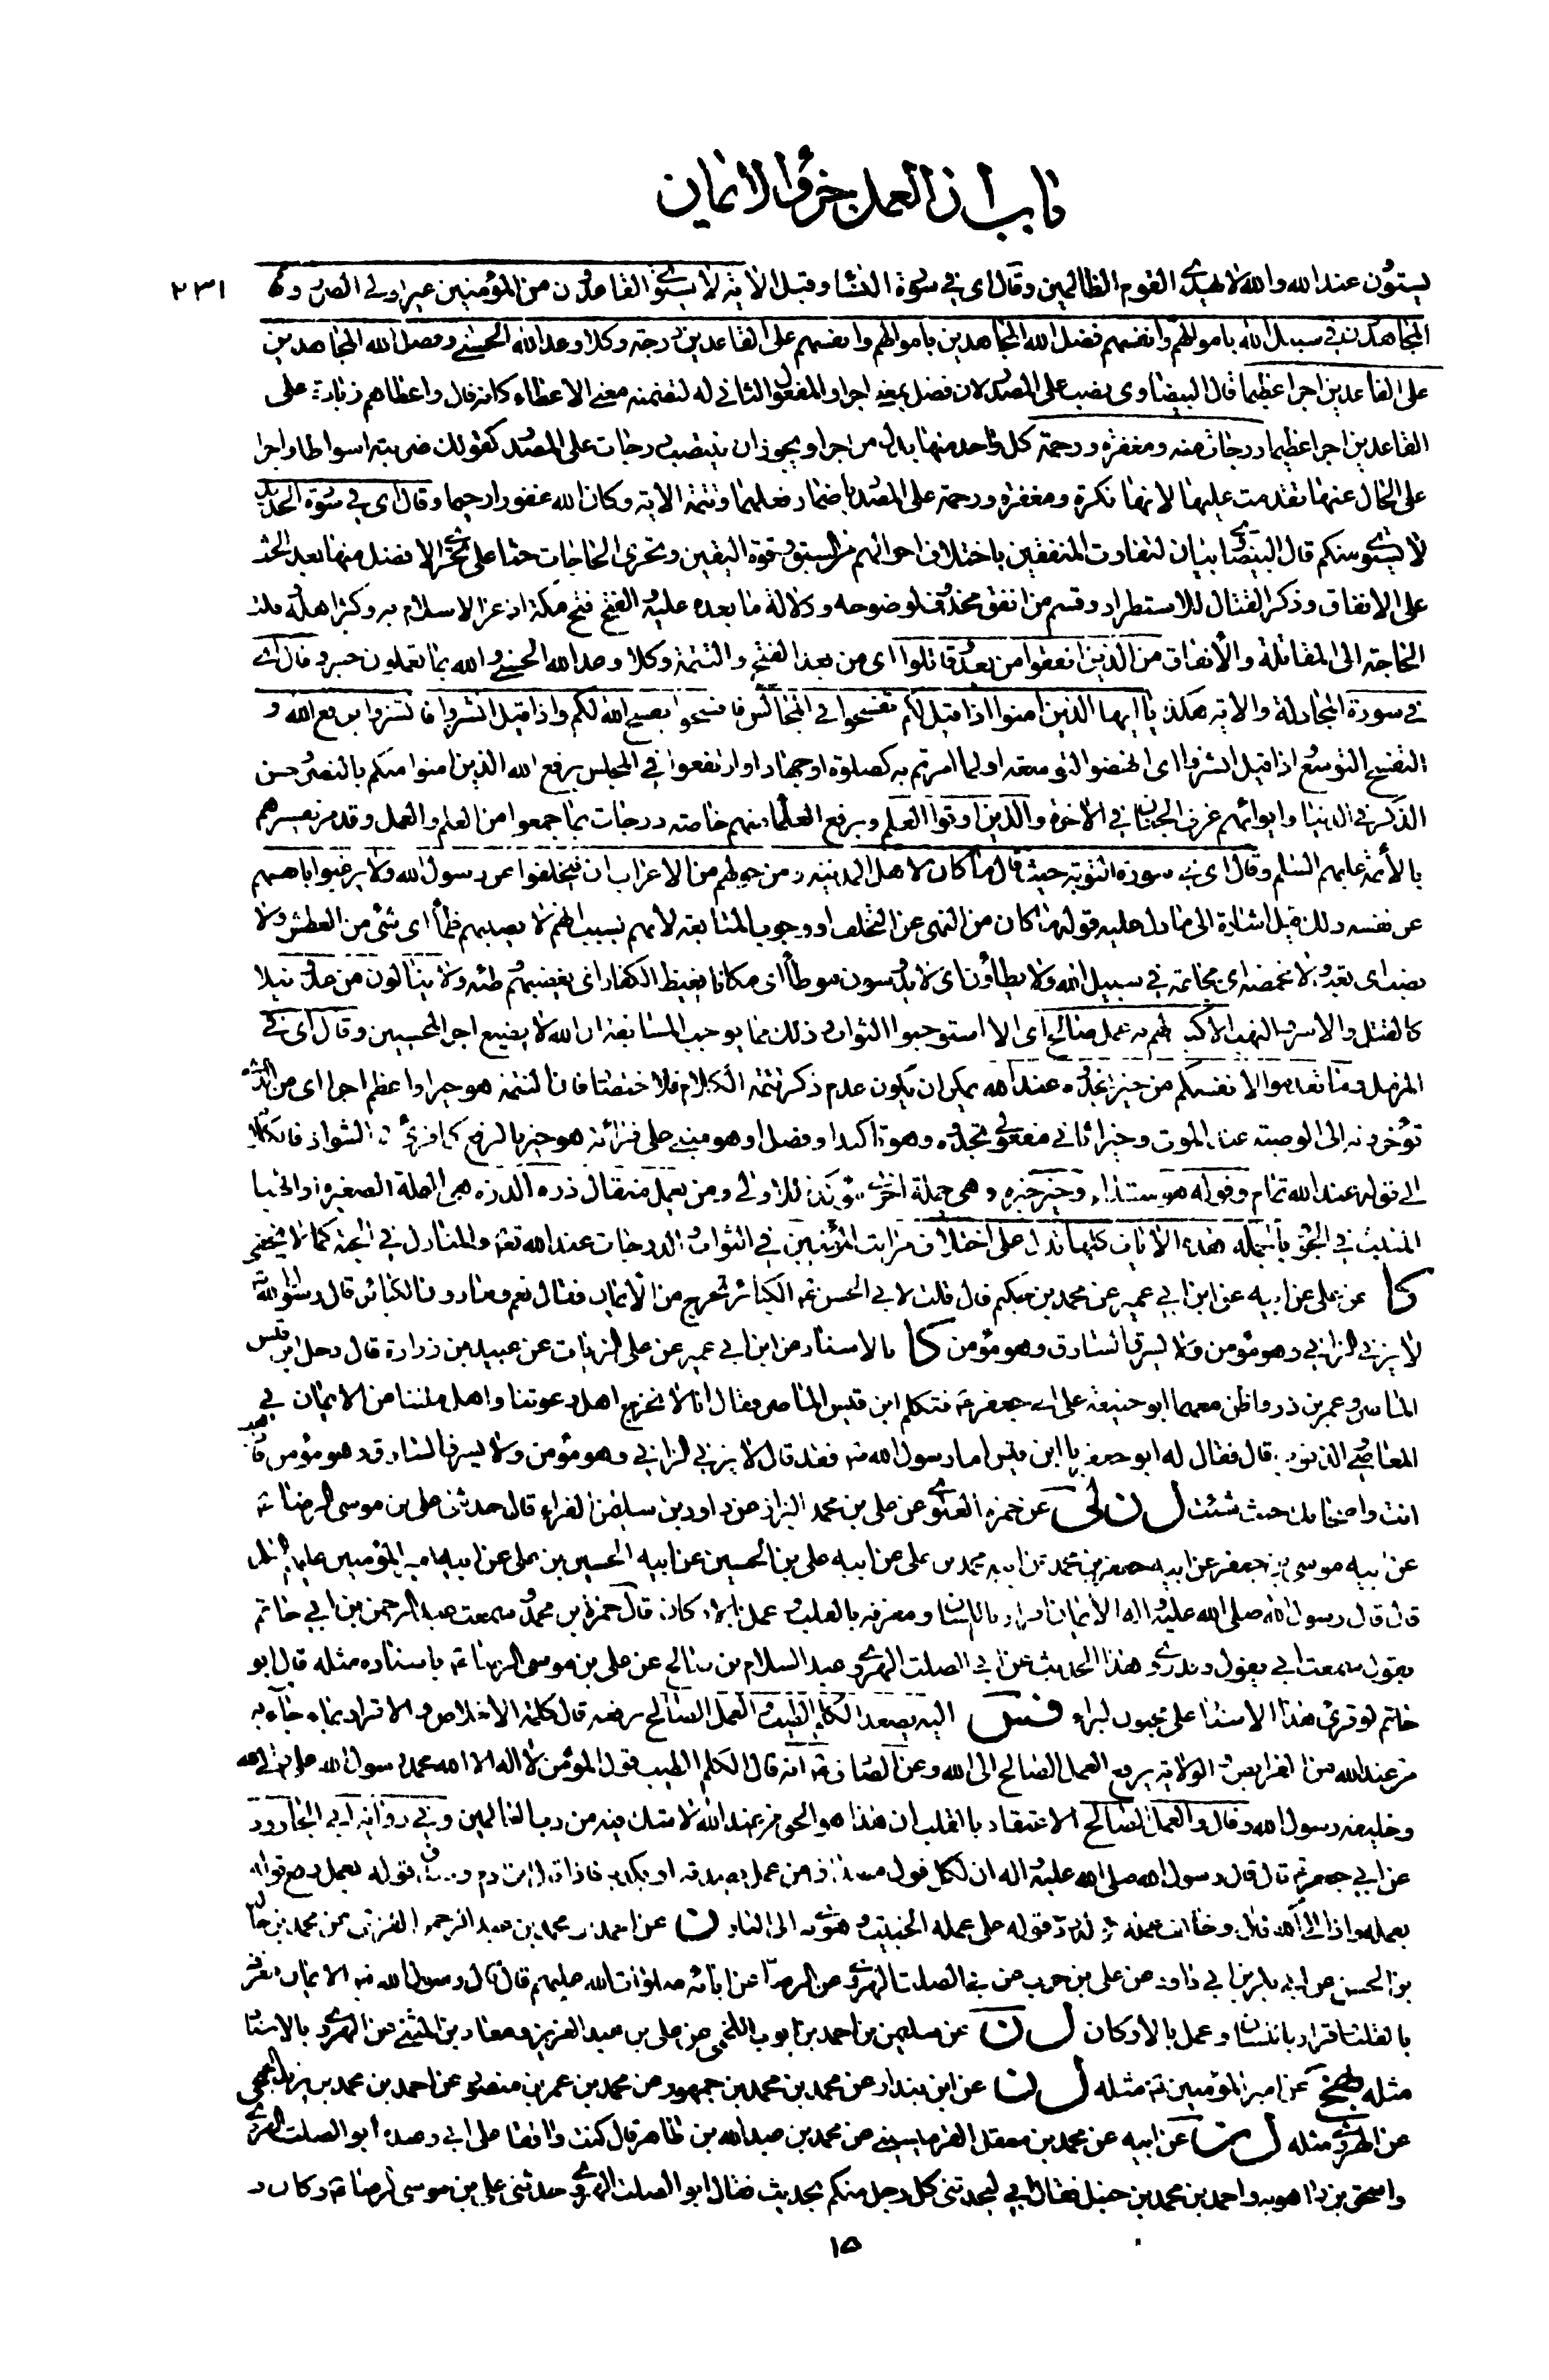 باب ان العمل جزء الايمان
٢٣١
يستوون عند الله والله لا يهدى القوم الظالمين وقال اى فى سورة النساء وقبل الاية لا يستوى القاعدون من المؤمنين غير اولى الضرر و
المجاهدون فى سبيل الله باموالهم وانفسهم فضل الله المجاهدين باموالهم وانفسهم على القاعدين درجة وكلا وعد الله الحسنى وفضل الله المجاهدين
على القاعدين اجرا عظيما قال البيضاوى نصب على المصدر لان فضل بمعنى اجر او المفعول الثانى له لتضمنه معنى الاعطاء كانه قال واعطاهم زيادة على
القاعدين اجرا عظيما درجات منه ومغفرة ورحمة كل واحد منها بدل من اجرا ويجوز ان ينتصب درجات على المصدر كقولك ضربته اسواطا واجرا
على الحال عنها تقدمت عليها لانها نكرة ومغفرة ورحمة على المصدر باضمار فعلهما وتتمة الاية وكان الله غفورا رحيما وقال اى فى سورة الحديد
لا يستوى منكم قال البيضاوى بيان لتفاوت المنفقين باختلاف احوالهم من السبق وقوة اليقين وتحرى الحاجات حثا على تحرى الافضل منها بعد الحث
على الانفاق وذكر القتال للاستطراد وقسم من انفق محذوف لوضوحه ودلالة ما بعده عليه والفتح فتح مكة اذ عز الاسلام به وكثر اهله وقلت
الحاجة الى المقاتلة والانفاق من الذين انفقوا من بعد وقاتلوا اى من بعد الفتح والتتمة وكلا وعد الله الحسنى والله بما تعملون خبير وقال اى
فى سورة المجادلة والاية هكذا يا ايها الذين امنوا اذا قيل لكم تفسحوا فى المجالس فافسحوا يفسح الله لكم واذا قيل انشزوا فانشزوا يرفع الله و
التفسح التوسع اذا قيل انشزوا اى انهضوا للتوسعة او لما امرتم به كصلوة او جهاد او ارتفعوا فى المجلس يرفع الله الذين امنوا منكم بالنصر وحسن
الذكر فى الدنيا وايوائهم غرف الجنان فى الاخرة والذين اوتوا العلم ويرفع العلماء منهم خاصة درجات بما جمعوا من العلم والعمل وقد مر تفسيرهم
بالائمة عليهم السلم وقال اى فى سورة التوبة حيث قال ما كان لاهل المدينة ومن حولهم من الاعراب ان يتخلفوا عن رسول الله ولا يرغبوا بانفسهم
عن نفسه ذلك قيل اشارة الى ما دل عليه قوله ما كان من النهى عن التخلف او وجوب المتابعة لانهم بسبب انهم لا يصيبهم ظمأ اى شئ من العطش ولا
نصب اى تعب ولا مخمصة اى مجاعة فى سبيل الله ولا يطأون اى لا يدوسون موطأ اى مكانا يغيظ الكفار اى يغضبهم وطئه ولا ينالون من عدو نيلا
كالقتل والاسر والنهب الا كتب لهم به عمل صالح اى الا استوجبوا الثواب وذلك مما يوجب المتابعة ان الله لا يضيع اجر المحسنين وقال اى فى
المزمل وما تقدموا لانفسكم من خير تجدوه عند الله يمكن ان يكون عدم ذكر تتمة الكلام فلاختصار فان التتمة هو خيرا واعظم اجرا اى من الذى
تؤخرونه الى الوصية عند الموت وخيرا ثانى مفعولى تجدوه وهو تاكيد او فصل او هو مبتدء على قرائة هو خير بالرفع كما قرئ فى الشواذ فالكلام
الى قوله عند الله تمام وقوله هو مبتداء وخير خبره وهى جملة اخرى مؤكدة للاولى ومن يعمل مثقال ذرة الذرة هى النملة الصغيرة او الهباء
المنبث فى الجو بالجملة هذه الايات كلها تدل على اختلاف مراتب المؤمنين فى الثواب والدرجات عند الله تعالى والمنازل فى الجنة كما لا يخفى
كا عن على عن ابيه عن ابن ابى عمير عن محمد بن حكيم قال قلت لابى الحسن ع الكبائر تخرج من الايمان فقال نعم وما دون الكبائر قال رسول الله ص
لا يزنى الزانى وهو مؤمن ولا يسرق السارق وهو مؤمن كا بالاسناد عن ابن ابى عمير عن على الزيات عن عبيد بن زرارة قال دخل ابن قيس
الماصر وعمر بن ذر واظن معهما ابو حنيفة على ابى جعفر ع فتكلم ابن قيس الماصر فقال انا لا نخرج اهل دعوتنا واهل ملتنا من الايمان فى
المعاصى والذنوب قال فقال له ابو جعفر يا ابن قيس اما رسول الله ص فقد قال لا يزنى الزانى وهو مؤمن ولا يسرق السارق وهو مؤمن فاذهب
انت واصحابك حيث شئت ل ن لى عن حمزة العلوى عن على بن محمد البزاز عن داود بن سليمن الفراء قال حدثنى على بن موسى الرضا ع
عن ابيه موسى بن جعفر عن ابيه جعفر بن محمد عن ابيه محمد بن على عن ابيه على بن الحسين عن ابيه الحسين بن على عن ابيه امير المؤمنين عليهم السلم
قال قال رسول الله صلى الله عليه واله الايمان اقرار باللسان ومعرفة بالقلب وعمل بالاركان قال حمزة بن محمد وسمعت عبد الرحمن بن ابى حاتم
يقول سمعت ابى يقول وقد روى هذا الحديث عن ابى الصلت الهروى عبد السلام بن صالح عن على بن موسى الرضا ع باسناده مثله قال ابو
حاتم لو قرئ هذا الاسناد على مجنون لبرء فس اليه يصعد الكلم الطيب والعمل الصالح يرفعه قال كلمة الاخلاص والاقرار بما جاء به
من عند الله من الفرايض والولاية يرفع العمل الصالح الى الله وعن الصادق ع انه قال الكلم الطيب قول المؤمن لا اله الا الله محمد رسول الله على ولى الله
وخليفة رسول الله وقال والعمل الصالح الاعتقاد بالقلب ان هذا هو الحق من عند الله لا شك فيه من رب العالمين وفى رواية ابى الجارود
عن ابى جعفر ع قال قال رسول الله صلى الله عليه واله ان لكل قول مصداقا من عمل يصدقه او يكذبه فاذا قال ابن ادم وصدق قوله بعمله رفع قوله
بعمله واذا قال وخالف عمله قوله رد قوله على عمله الخبيث وهوى به الى النار ن عن احمد بن محمد بن عبد الرحمن القرشى عن محمد بن خالد
بن الحسن عن ابى بكر بن ابى داود عن على بن حرب عن ابى الصلت الهروى عن الرضا عن ابائه صلوات الله عليهم قال قال رسول الله ص الايمان معرفة
بالقلب واقرار باللسان وعمل بالاركان ل ن عن سليمن بن احمد بن ايوب اللخمى عن على بن عبد العزيز ومعاذ بن المثنى عن الهروى بالاسناد
مثله نهج عن امير المؤمنين ع مثله ل ن عن ابن بندار عن محمد بن محمد بن جمهور عن محمد بن عمر بن منصور عن احمد بن محمد بن يزيد الجمحى
عن الهروى مثله ل ن عن ابيه عن محمد بن معقل القرميسينى عن محمد بن عبد الله بن طاهر قال كنت واقفا على ابى وعنده ابو الصلت الهروى
واسحق بن راهويه واحمد بن محمد بن حنبل فقال ابى ليحدثنى كل رجل منكم بحديث فقال ابو الصلت الهروى حدثنى على بن موسى الرضا ع وكان و
١٥